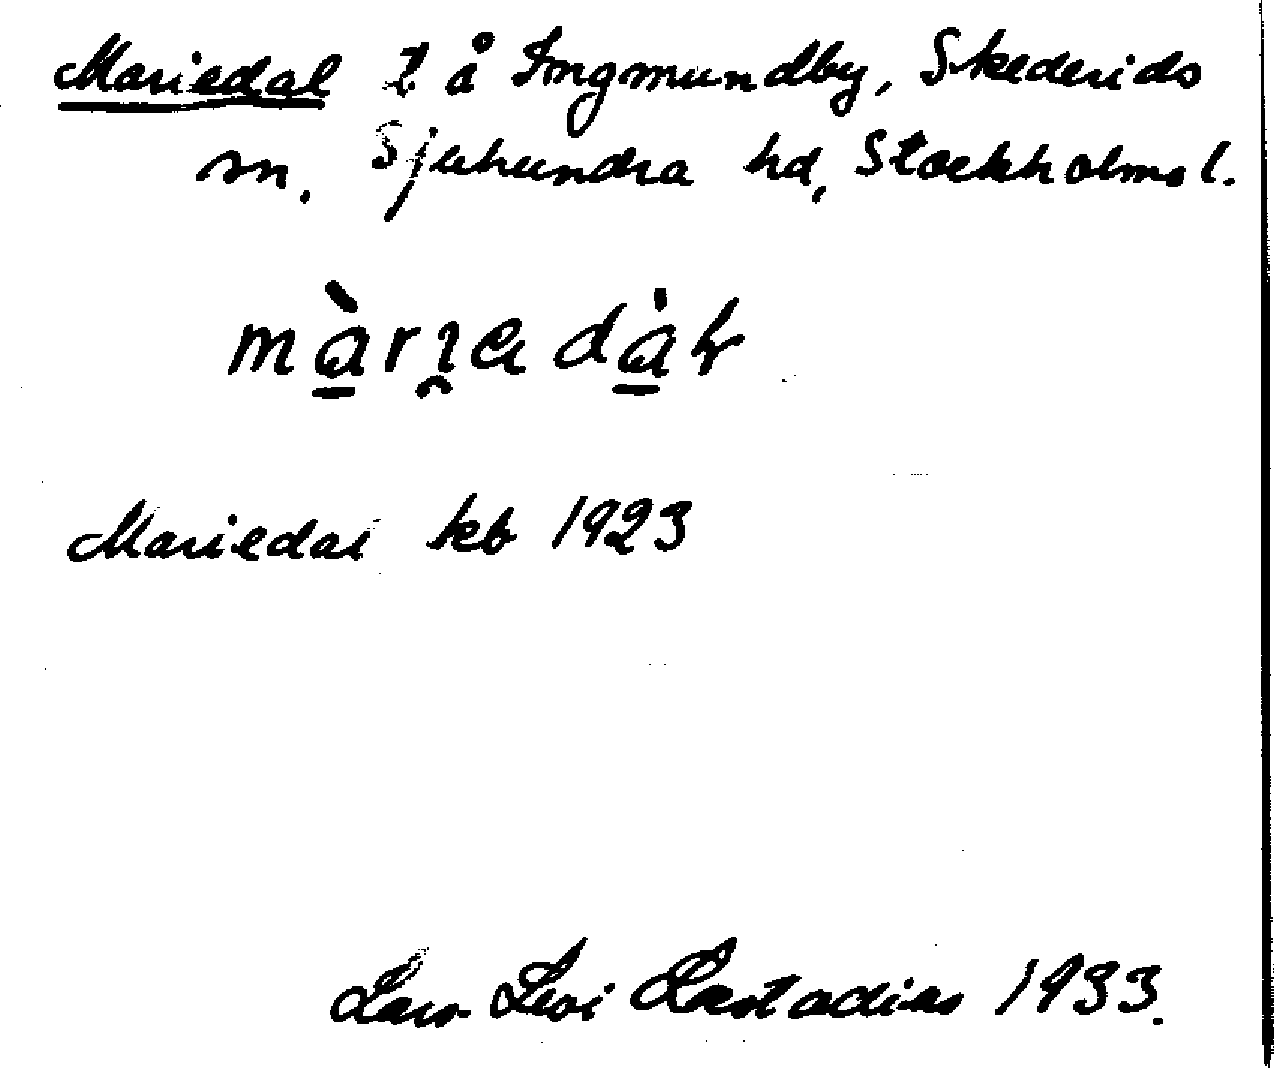 Mariedal l å Ingmundby, Skederids
sn. Sjuhundra hd, Stockholms l.
màrıedàł
Mariedal kb 1923
Lars Levi Læstadius 1933.